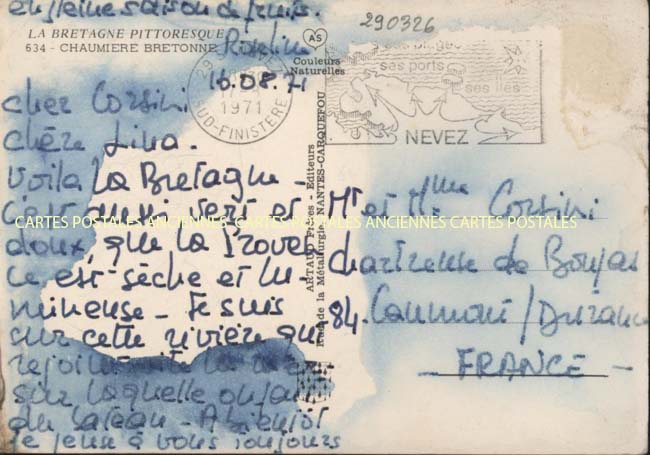 en pleine saison de fruits.
290326
LA BRETAGNE PITTORESQUE
634 - CHAUMIERE BRETONNE
AS
Couleurs
Naturelles
16.08.71
1971
SUD-FINISTERE
ses plages
ses ports
ses îles
NEVEZ
cher Corsini
chère Lina.
Voilà la Bretagne
c'est aussi vert et
doux, que la Proven
ce est sèche et lu-
mineuse - Je suis
sur cette rivière qui
rejoint vite la mer
sur laquelle on fait
du bateau - A bientôt
je pense à vous toujours
ARTAUD Frères - Editeurs
Rue de la Métallurgie, NANTES-CARQUEFOU
Mr et Mme Corsini
chartreuse de Bonpas
84. Caumont / Durance
- FRANCE -
CARTES POSTALES ANCIENNES CARTES POSTALES ANCIENNES CARTES POSTALES